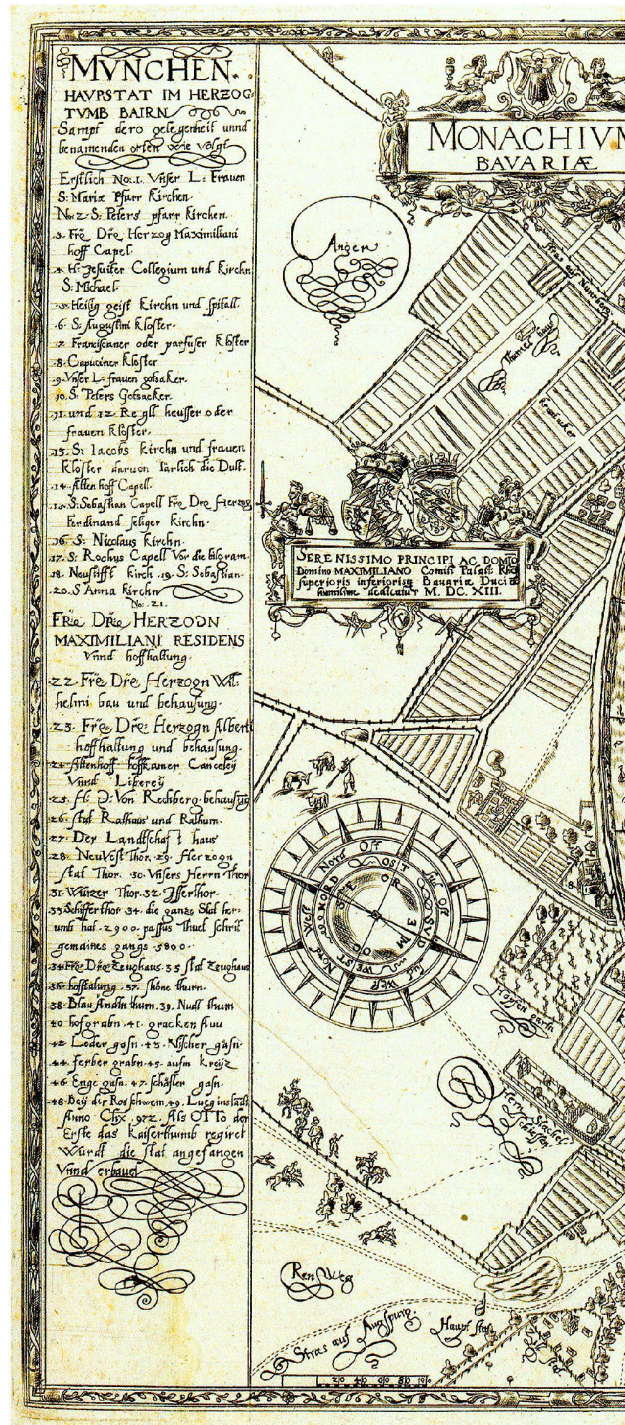 MVNCHEN.
HAVPSTAT IM HERZOG
TVMB BAIRN
Sampt dero gelegenheit unnd
benamenden orten wie volgt
Erstlich No: 1. Vnser L: Frauen
S: Mariæ Pfarr Kirchen.
No: 2. S: Peters pfarr kirchen.
3. Frē Drē Herzog Maximiliani
hoff Capel.
4. H: Jesuiter Collegium und kirchn
S: Michael.
5. Heilig geist Kirchn und spitall.
6. S: Augustini kloster.
7. Franciscaner oder parfuser kloster
8. Capuciner kloster
9. Vnser L: frauen gotsaker.
10. S: Peters Gotsacker.
11. und 12. Regll heusser oder
frauen kloster.
13. S: Iacobs kirchn und frauen
kloster darvon Iärlich die Dult.
14. Alten hoff Capell.
15. S: Sebastian Capell Frē Drē Herzog
Ferdinand seliger kirchn.
16. S: Nicolaus kirchn.
17. S: Rochus Capell Vor die bilgram.
18. Neustifft kirch. 19. S: Sebastian.
20. S Anna kirchn
No. 21.
FRē DRē HERZOGN
MAXIMILIANI RESIDENS
Vnnd hoffhaltung.
22. Frē Drē Herzogn Wil-
helmi bau und behausung.
23. Frē Drē: Herzogn Alberti
hoffhaltung und behausung.
24. Altenhoff hoffkamer Canceley
Vnnd Liberey
25. H: D: Von Rechberg behausung
26. stat Rathaus und Rathurn.
27. Der Landtschaft haus
28. NeuVest Thor. 29. Herzogn
stat Thor. 30. Vnsers Herrn Thor
31. Wurzer Thor. 32. Isserthor.
33. Schifferthor 34. die ganze Stat her-
umb hat. 2900. passus thuet schrit
gemaines gangs 5800.
34. Frē Drē Zeughaus. 35. stat Zeughaus
36. hofstallung. 37. schöne thurn.
38. Blau Ändtn thurn. 39. Nudl thurn
40. hofgrabn. 41. gracken
42. Leder gasn. 43. Vischer gasn.
44. ferber grabn. 45. aufm kreyz
46. Enge gasn. 47. schäfler gasn.
48. Bey der Rosschwem. 49. Lueg ins land
Anno Chr. 972. Als OTTo der
Erste das Kaiserthumb regiret
Wurdt die stat angefangen
Vnnd erbauet
MONACHIVM
BAVARIÆ
Angen
Stras auf Nurnberg
SERENISSIMO PRINCIPI AC DOMIO
Domino MAXIMILIANO Comiti Palati Rhe
superioris inferiorisq Bavariæ Duci
humilime dedicatur M. DC. XIII.
Nord Ost
OST
Sud Ost
SVD
Sud West
WEST
Nord West
NORD
SEP
OR
ME
OC
Hopfen garten
8
Herrn Stachel
schiessen
Ren Weg
Stras auf Augspurg.
Haupt stat
20 40 60 80 100